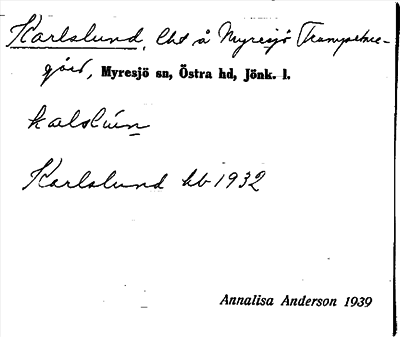 Karlslund, Lht å Myresjö Trumpetare-
gård, Myresjö sn, Östra hd, Jönk. l.
kalslún
Karlslund kb 1932
Annalisa Anderson 1939